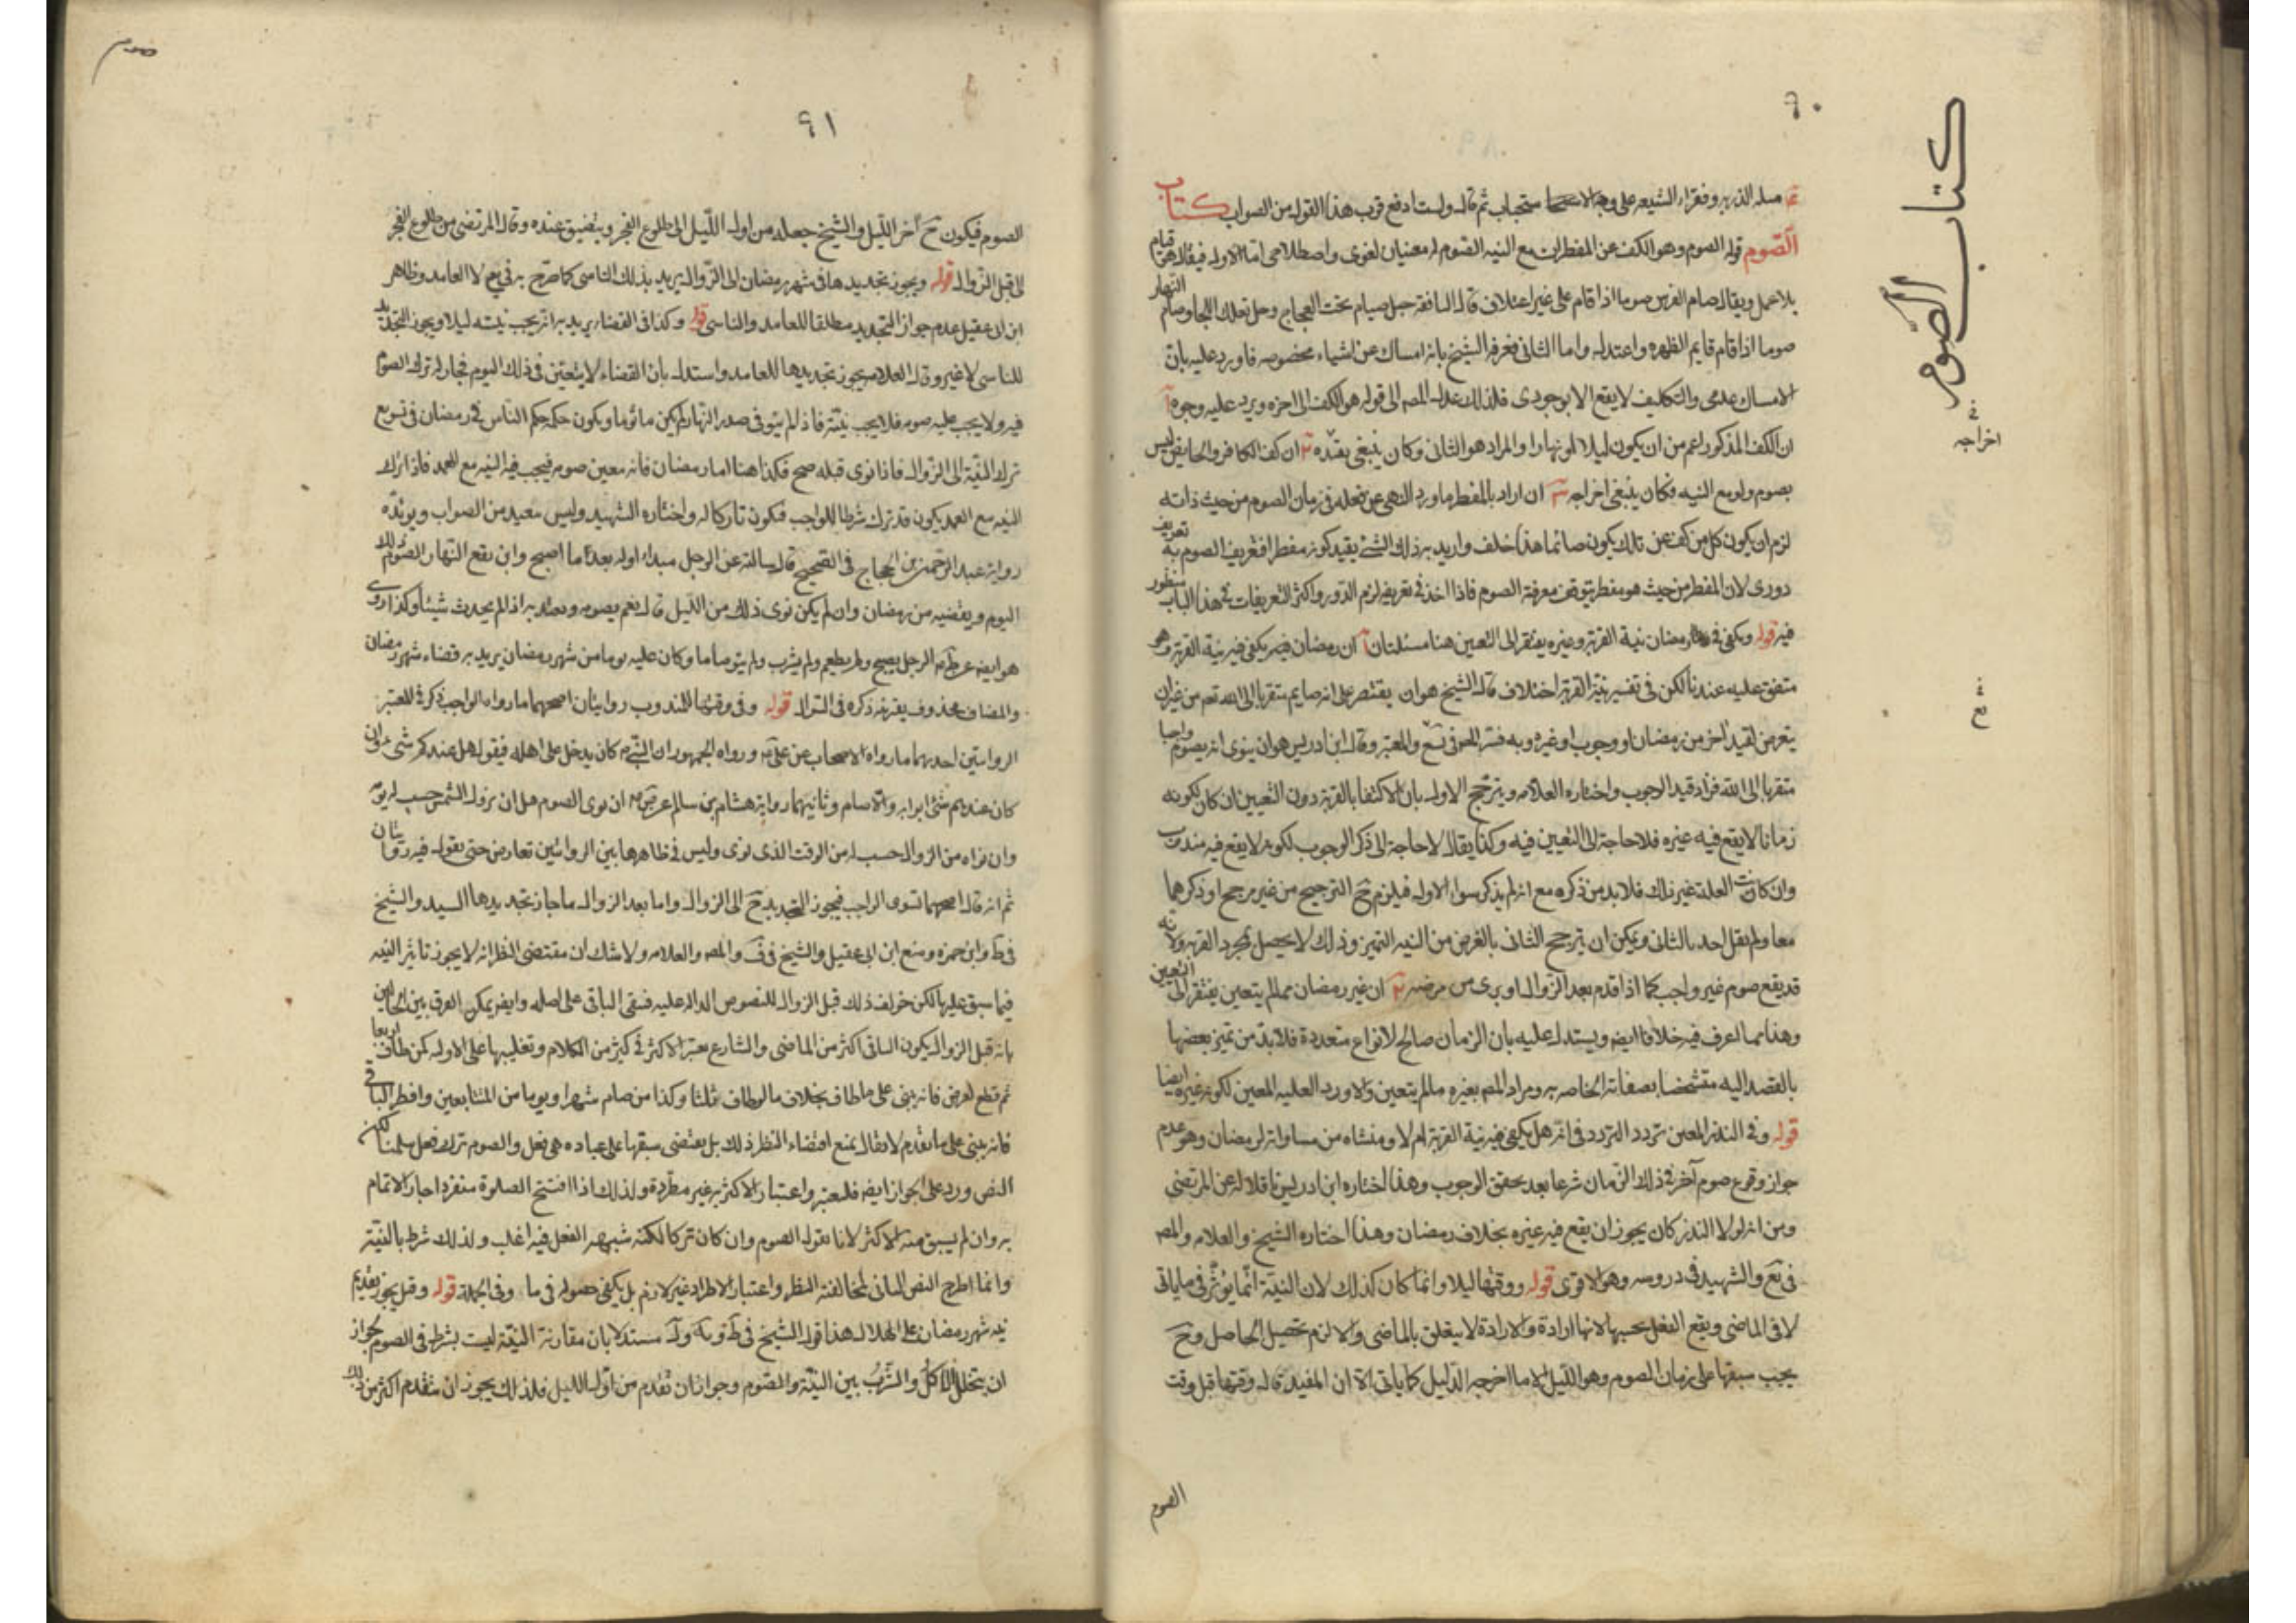 ٩٠
كتاب الصوم
صله الذريه وفقراء الشيعه على وجه الاستحباب ثم قال ولست ادفع قرب هذا القول من الصواب كتاب
الصوم قوله الصوم وهو الكف عن المفطرات مع النيه الصوم له معنيان لغوى واصطلاحى اما الاول فيقال هو قيام
بلا عمل ويقال صام الفرس صوما اذا قام على غير اعتلاف قال النابغة خيل صيام تحت العجاج وخيل تعلك اللجما وصام النهار
صوما اذا قام قايم الظهيره واعتدل واما الثانى فعرفه الشيخ بانه امساك عن اشياء مخصوصه فاورد عليه بان
الامساك عدمى والتكليف لا يقع الا بوجودى فلذلك عدل المصـ الى قوله هو الكف الى اخره ويرد عليه وجوه آ
ان الكف المذكور اعم من ان يكون ليلا او نهارا والمراد هو الثانى وكان ينبغى يقيده ٢ ان كف الكافر والحايض ليس
بصوم ولو مع النيه فكان ينبغى اخراجه ٣ ان اراد بالمفطر ما ورد النهى عن فعله فى زمان الصوم من حيث ذاته
لزم ان يكون كل من كف عن تلك يكون صائما هذا خلف واريد به ذلك الشئ بقيد كونه مفطرا فتعريف الصوم به تعريف
دورى لان المفطر من حيث هو مفطر يتوقف معرفة الصوم فاذا اخذ فى تعريفه لزم الدور واكثر التعريفات فى هذا الباب منظور
فيه قوله ويكفى فى رمضان نية القربة وغيره يفتقر الى التعيين هنا مسئلتان آ ان رمضان يكفى فيه نية القربة وهو
متفق عليه عندنا لكن فى تفسير نية القربة اختلاف قال الشيخ هو ان يقتصر على انه صايم متقربا الى الله تعم من غير ان
يتعرض لقيد آخر من رمضان او وجوب او غيره وبه فسر المحقق فى يع والمعتبر وقال ابن ادريس هو ان ينوى انه يصوم واجبا
متقربا الى الله فزاد قيد الوجوب واختاره العلامه ويترجح الاول بان الاكتفا بالقربة دون التعيين ان كان لكونه
زمانا لا يقع فيه غيره فلا حاجة الى التعيين فيه وكذا يقال لا حاجة الى ذكر الوجوب لكونه لا يقع فيه مندوب
وان كانت العلة غير ذلك فلا بد من ذكره مع انه لم يذكر سواء الاول فيلزم ح الترجيح من غير مرجح او ذكرهما
معا ولم يقل احد بالثانى ويمكن ان يترجح الثانى بالغرض من النيه التميز وذلك لا يحصل بمجرد القربه ولانه
قد يقع صوم غير واجب كما اذا قدم بعد الزوال او برى من مرضه ٢ ان غير رمضان مما لم يتعين يفتقر الى التعيين
وهذا مما لا عرف فيه خلافا ايضا ويستدل عليه بان الزمان صالح لانواع متعددة فلا بد من تميز بعضها
بالقصد اليه متشخصا بصفاته الخاصه به ومراد المصـ بغيره ما لم يتعين والا ورد العليه المعين لكونه غيره ايضا
قوله وفى النذر المعين تردد التردد فى انه هل يكفى فيه نية القربة ام لا ومنشاه من مساواته لرمضان وهو عدم
جواز وقوع صوم آخر فى ذلك الزمان شرعا بعد تحقق الوجوب وهذا اختاره ابن ادريس ناقلا له عن المرتضى
ومن انه لولا النذر كان يجوز ان يقع فيه غيره بخلاف رمضان وهذا اختاره الشيخ والعلامه والمصـ
فى يع والشهيد فى دروسه وهو الاقوى قوله ووقتها ليلا وانما كان كذلك لان النية انما يؤثر فى ما ياتى
لا فى الماضى ويقع الفعل بحسبها لانها ارادة والارادة لا يتعلق بالماضى والا لزم تحصيل الحاصل وح
يجب سبقها على زمان الصوم وهو الليل الا ما اخرجه الدليل كما ياتى الا ان المفيد قال وقتها قبل وقت
الصوم
اخراجه
صوم
٩١
الصوم فيكون ح آخر الليل والشيخ جعله من اول الليل الى طلوع الفجر ويتضيق عنده وقال المرتضى من طلوع الفجر
الى قبل الزوال قوله ويجوز تجديدها فى شهر رمضان الى الزوال يريد بذلك الناسى كما صرح به فى يع لا العامد وظاهر
ابن ابى عقيل عدم جواز التجديد مطلقا للعامد والناسى قوله وكذا فى القضا يريد به انه يجب نيته ليلا ويجوز التجديد
للناسى لا غير وقال العلامه يجوز تجديدها للعامد واستدل بان القضاء لا يتعين فى ذلك اليوم فجاز له ترك الصوم
فيه ولا يجب عليه صومه فلا يجب نيته فاذا لم ينو فى صدر النهار لم يكن ماثوما ويكون حكمه حكم الناس فى رمضان فى تسويع
ترك النية الى الزوال فاذا نوى قبله صح فكذا هنا اما رمضان فانه معين صومه فيجب فيه النيه مع العمد فاذا ترك
النيه مع العمد يكون قد ترك شرطا للواجب فيكون تاركا له واختاره الشهيد وليس ببعيد من الصواب ويويده
رواية عبد الرحمن بن الحجاج فى الصحيح قال سالته عن الرجل يبدا له بعد ما اصبح وارتفع النهار الصوم ذلك
اليوم ويقضيه من رمضان وان لم يكن نوى ذلك من الليل قال نعم يصومه ويعتد به اذا لم يحدث شيئا وكذا روى
هو ايضا عن الرجل يصبح ولم يطعم ولم يشرب ولم ينو صوما وكان عليه يوما من شهر رمضان يريد به قضاء شهر رمضان
والمضاف محذوف بقرينه ذكره فى السؤال قوله وفى وقتها للمندوب روايتان اصحهما مساواه الواجب ذكر فى المعتبر
الروايتين احديهما ما رواه الاصحاب عن على ع ورواه الجمهور ان النبى ص كان يدخل على اهله فيقول هل عندكم شئ فان
كان عندهم شئ اتوا به والا صام وثانيهما رواية هشام بن سالم عن ص ع ان نوى الصوم قبل ان يزول الشمس حسب له يومه
وان نواه من الزوال حسب له من الوقت الذى نوى وليس فى ظاهرها بين الروايتين تعارض حتى يقول فيه روايتان
ثم انه قال اصحهما تسوى الواجب فيجوز التجديد ح الى الزوال واما بعد الزوال ما جاز تجديدها السيد والشيخ
فى ط وابن حمزه ومنع ابن ابى عقيل والشيخ فى ف والمصـ والعلامه ولا شك ان مقتضى النظر انه لا يجوز تاثير النيه
فيما سبق عليها لكن خولف ذلك قبل الزوال للنصوص الداله عليه فبقى الباقى على اصله وايضا يمكن الفرق بين الحالين
بانه قبل الزوال يكون الباقى اكثر من الماضى والشارع يعتبر الاكثر فى كثير من الاحكام وتغليبها على الاول كمن طاف اربعا
ثم قطع لعرض فانه يبنى على ما طاف بخلاف ما لو طاف ثلثا وكذا من صام شهرا ويوما من المتتابعين وافطر الباقى
فانه يبنى على ما تقدم لا يقال يمنع اقتضاء النظر ذلك بل يقتضى سبقها على عباده هى فعل والصوم ترك فعل سلمنا لكن
النص ورد على الجواز ايضا فليعتبر واعتبار الاكثريه غير مطرده ولذلك اذا افتتح الصلوة منفردا جاز الاتمام
به وان لم يسبق منه الاكثر لانا نقول الصوم وان كان تركا لكنه شبهه الفعل فيه اغلب ولذلك شرط بالنية
وانما اطرح النص الثانى لمخالفته النظر واعتبار الاطراد غير لازم بل يكفى حصوله فى ما وفى الجملة قوله وقيل يجوز تقديم
نيه شهر رمضان على الهلال هذا قول الشيخ فى ط و يه و ف مستدلا بان مقارنة النية ليست بشرط فى الصوم لجواز
ان يتخلل الاكل والشرب بين النية والصوم وجواز ان تقدم من اول الليل فلذلك يجوز ان يتقدم اكثر من ذلك